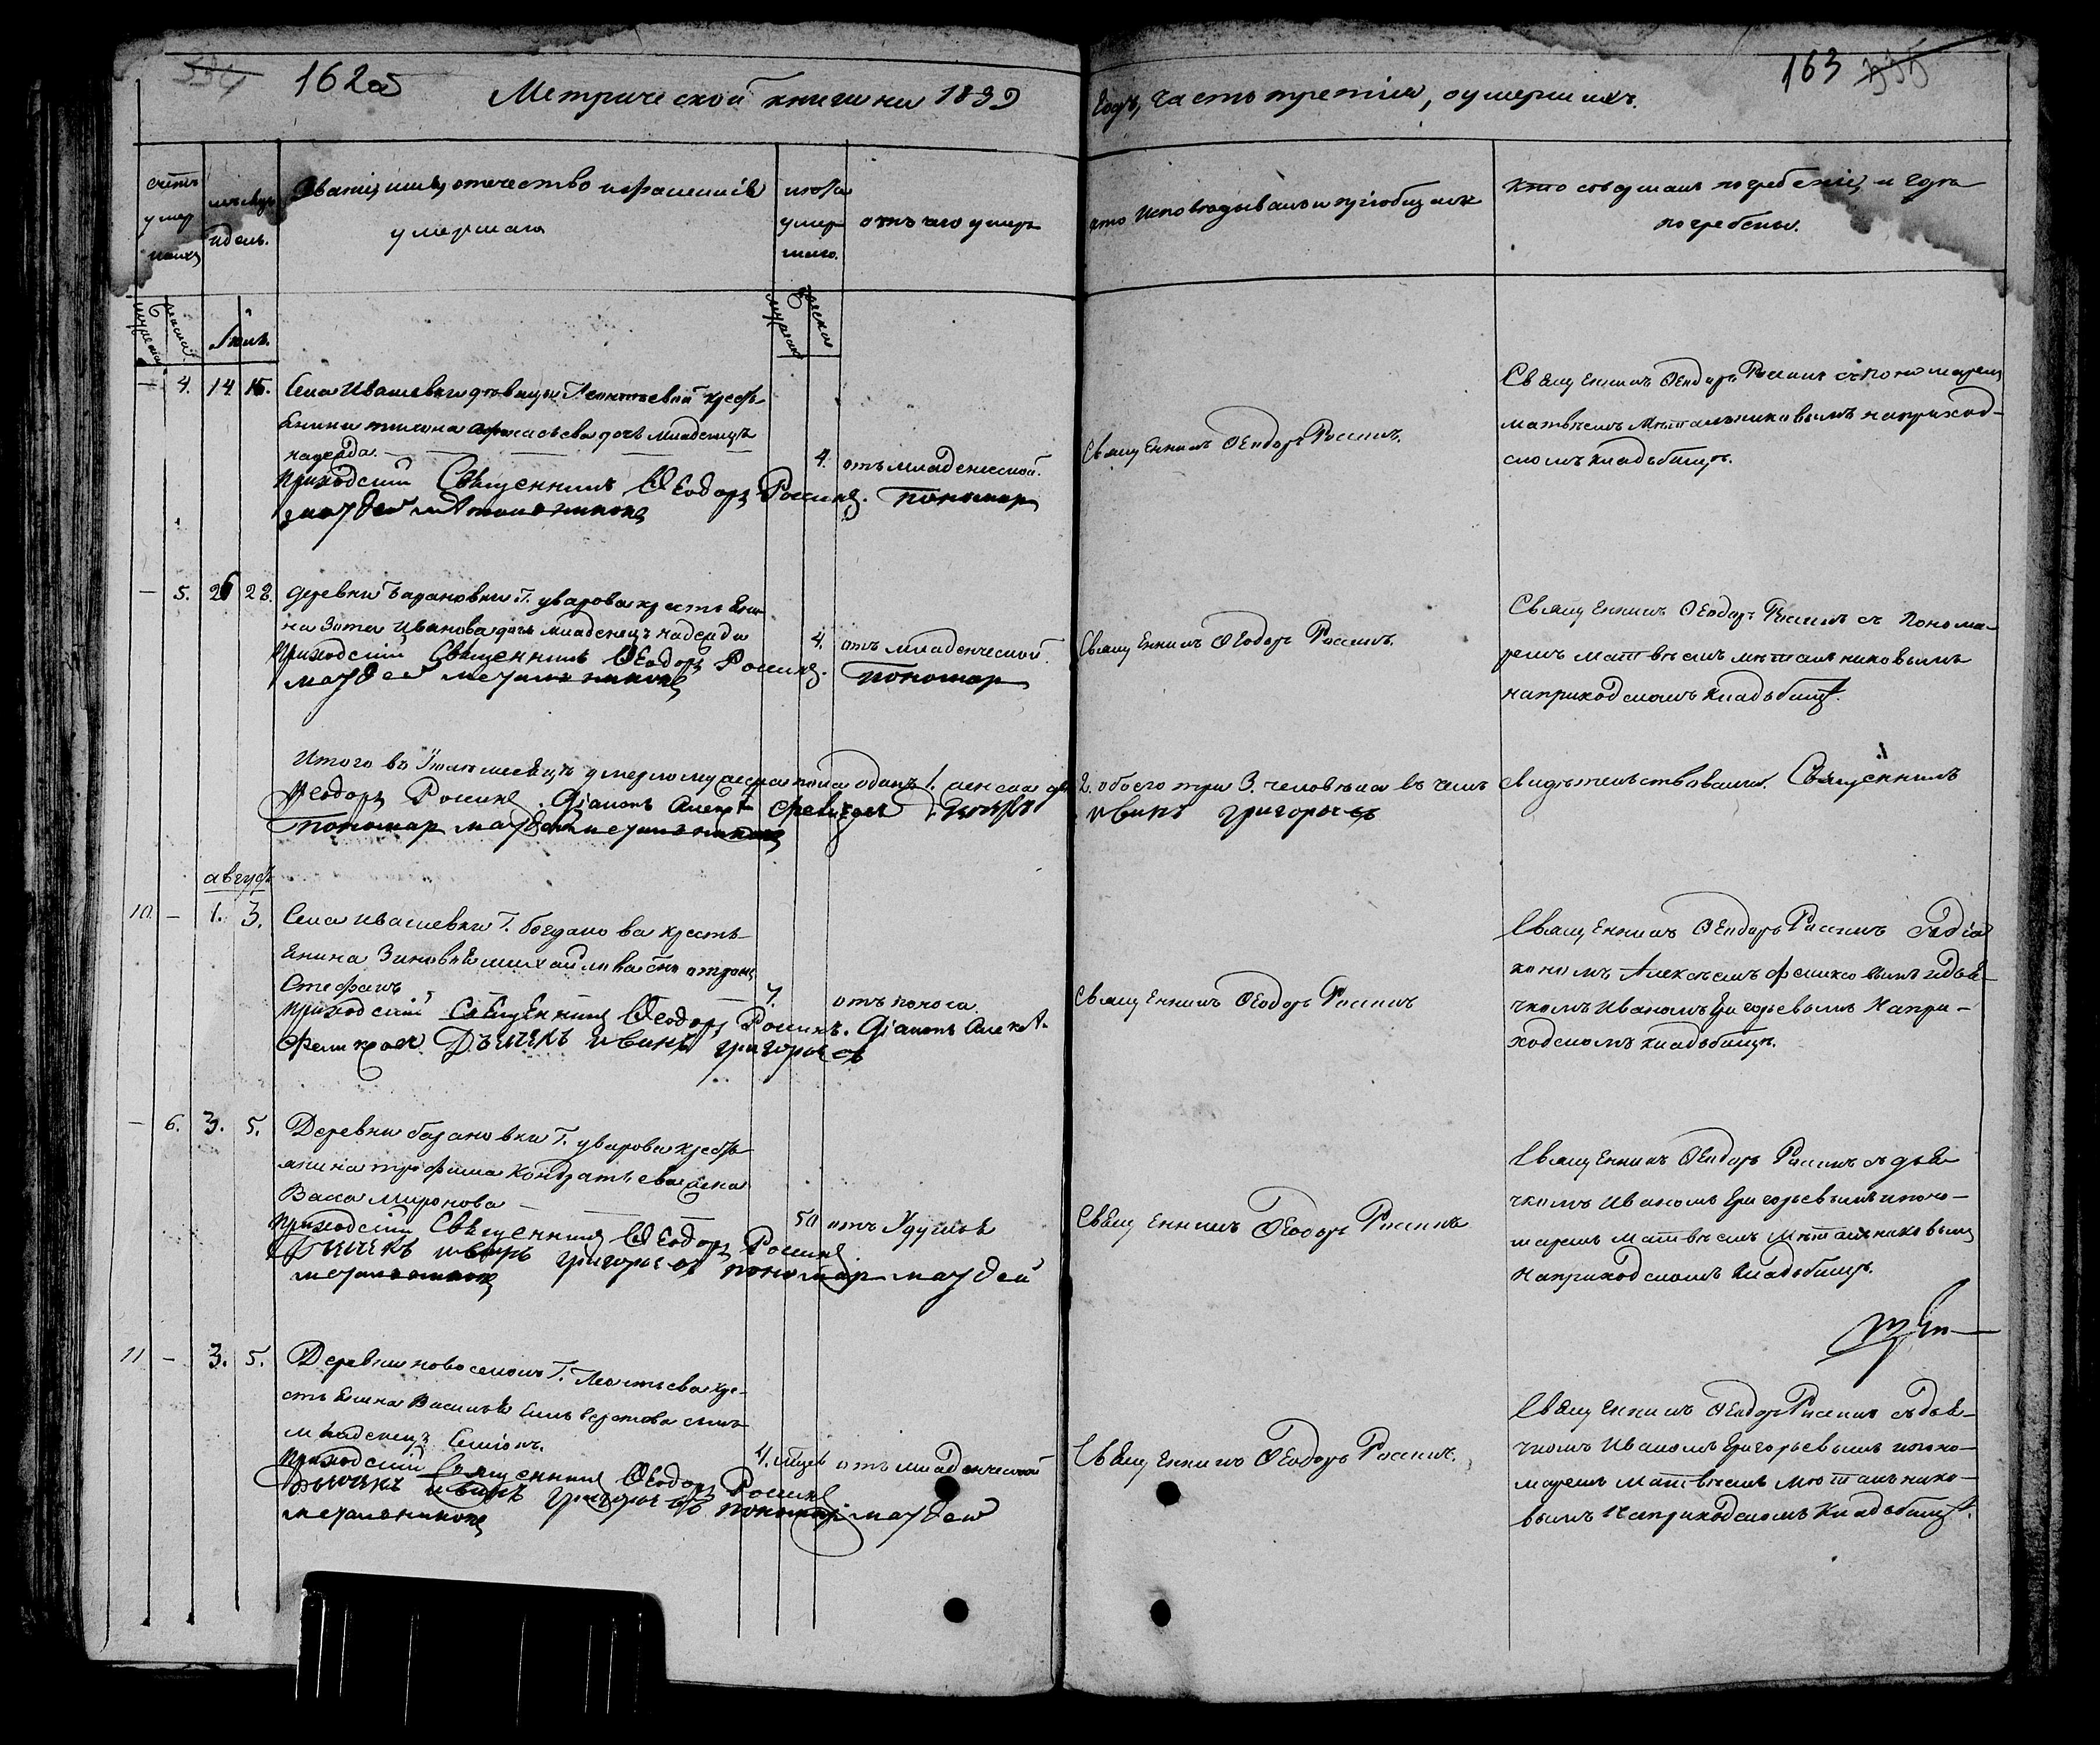 162об
Метрической книги на 1839
годъ, часть третія, о умершихъ.
163
счетъ умершихъ
мѣсяцъ и день.
Званіе, имя, отечество и фамилія
умершаго
лѣта умершаго.
отъ чего умеръ
кто исповѣдывалъ и пріобщалъ
кто совершалъ погребеніе, и гдѣ
погребены.
мужеска
женска
Іюль.
мужеска
женска
— 4. 14 15. Села Ивашевки госпожи Леонтьевой крестья
янина Тихона Афанасьева дочь младенецъ
надежда. 4. отъ младенческой.
Приходскій Священникъ Ѳеодоръ Россинъ. Пономар
матвей метальников
Священникъ Ѳеодоръ Россинъ.
Священникъ Ѳеодоръ Россинъ съ пономаремъ
матвѣемъ Метальниковымъ на приход-
скомъ кладьбищѣ.
— 5. 26 28. деревни Барановки Г. уварова крестьяни-
на Зота Иванова дочь младенецъ надежда 4. отъ младенческой.
Приходскій Священникъ Ѳеодоръ Россинъ.
матвей метальников Пономар
Священникъ Ѳеодоръ Россинъ.
Священникъ Ѳеодоръ Россинъ съ Понома-
ремъ матвѣемъ метальниковымъ
на приходскомъ кладьбищѣ.
Итого въ Іюлѣ месяцѣ умерло мужеска пола одинъ 1. женска две 2. обоего три 3. человѣка въ чемъ свидѣтельствовали. Священникъ
Ѳеодоръ Россинъ. Діаконъ Алексѣ дьячокъ иванъ григорьевъ
Пономар матвей метальников
августъ
10. — 1. 3. Села ивашевки Г. богданова кресть-
янина Зиновья михайлова сынъ отрокъ
Стефанъ 7. отъ поноса.
Приходскій Священникъ Ѳеодоръ Россинъ. Діаконъ Алексѣ
Дьячекъ иванъ григорьевъ
Священникъ Ѳеодоръ Россинъ
Священникъ Ѳеодоръ Россинъ съ діа
кономъ Алексѣемъ и дья-
чкомъ Иваномъ Григорьевымъ на при-
ходскомъ кладьбищѣ.
— 6. 3. 5. Деревни барановки Г. уварова кресть
янина трофима Кондратьева жена
Васа миронова 50 отъ Удушья
Приходскій Священникъ Ѳеодоръ Россинъ.
Дьячекъ иванъ григорьевъ пономар матвей
метальников
Священникъ Ѳеодоръ Россинъ
Священникъ Ѳеодоръ Россинъ съ дья
чкомъ Иваномъ Григорьевымъ и поно-
маремъ матвѣемъ Метальниковымъ
на приходскомъ кладьбищѣ.
11 — 3. 5. Деревни новоселокъ Г. Леонтьева кре-
стьянина Василья Сильвестрова сынъ
младенецъ Симіонъ. 4. мѣсев отъ младенческой
Приходскій Священникъ Ѳеодоръ Россинъ
Дьячекъ иванъ григорьевъ пономар матвей
метальников
Священникъ Ѳеодоръ Россинъ.
Священникъ Ѳеодоръ Россинъ съ дья-
чкомъ Иваномъ Григорьевымъ и поно-
маремъ матвѣемъ Метальнико-
вымъ на приходскомъ кладьбищѣ.